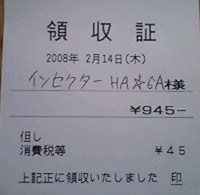 領収証
2008年 2月14日(木)
インセクターHA☆GA様
¥945-
但し
消費税等 ¥45
上記正に領収いたしました 印